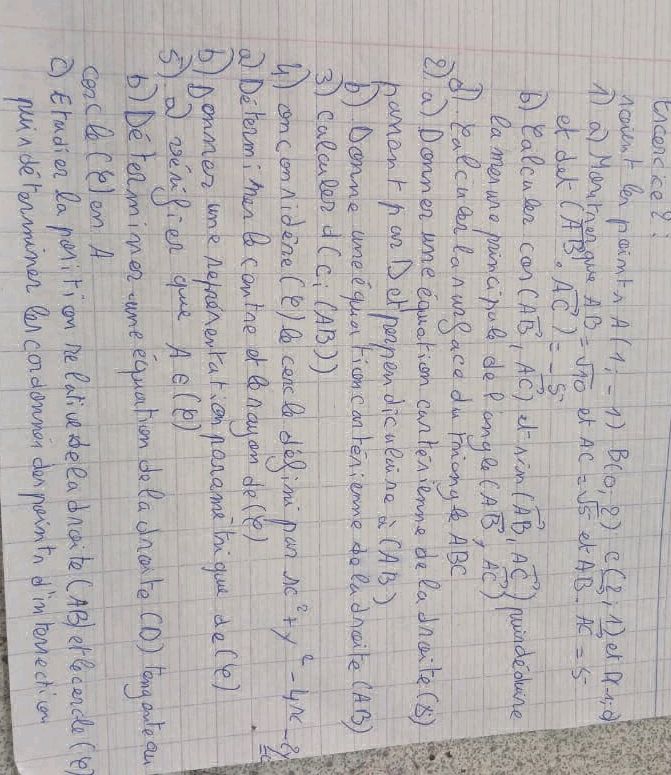 Exercice 2:
soient les points A(1; -1) B(0; 2); C(2; 1) et
1) a) Montrer que AB = √10 et AC = √5 et AB . AC = 5
et det (AB . AC) = -5
b) Calculer cos(AB, AC) et sin(AB, AC) puis déduire
la mesure principale de l'angle (AB, AC)
d) Calculer la surface du triangle ABC
2) a) Donner une équation cartésienne de la droite
passant par D et perpendiculaire à (AB)
b) Donne une équation cartésienne de la droite (AB)
3) Calculer d(C; (AB))
4) on considère (C) le cercle défini par x² + y² - 4x - 2y
a) Déterminer le centre et le rayon de (C)
b) Donner une représentation paramétrique de (C)
5) a) vérifier que A ∈ (C)
b) Déterminer une équation de la droite (D) tangente au
cercle (C) en A
c) Etudier la position relative de la droite (AB) et le cercle (C)
puis déterminer les cordonnés des points d'intersection